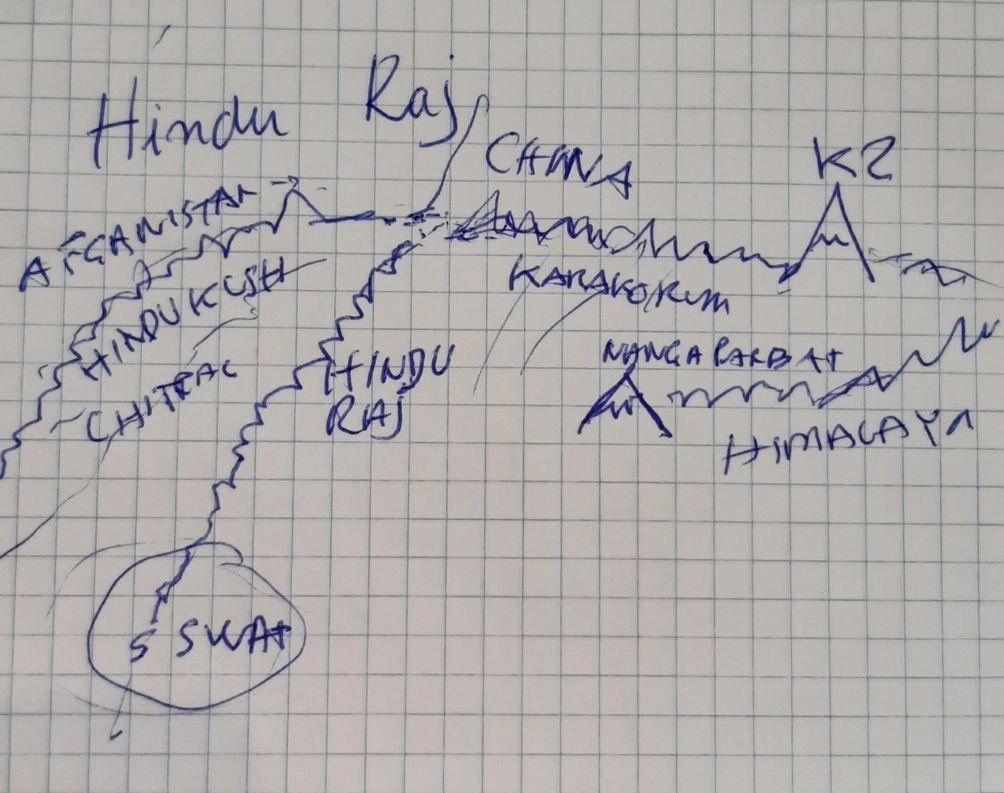 Hindu Raj
CHINA
K2
AFGANISTAN
HINDU KUSH
KARAKORUM
CHITRAL
HINDU
RAJ
NANGA PARBAT
HIMALAYA
S SWAT